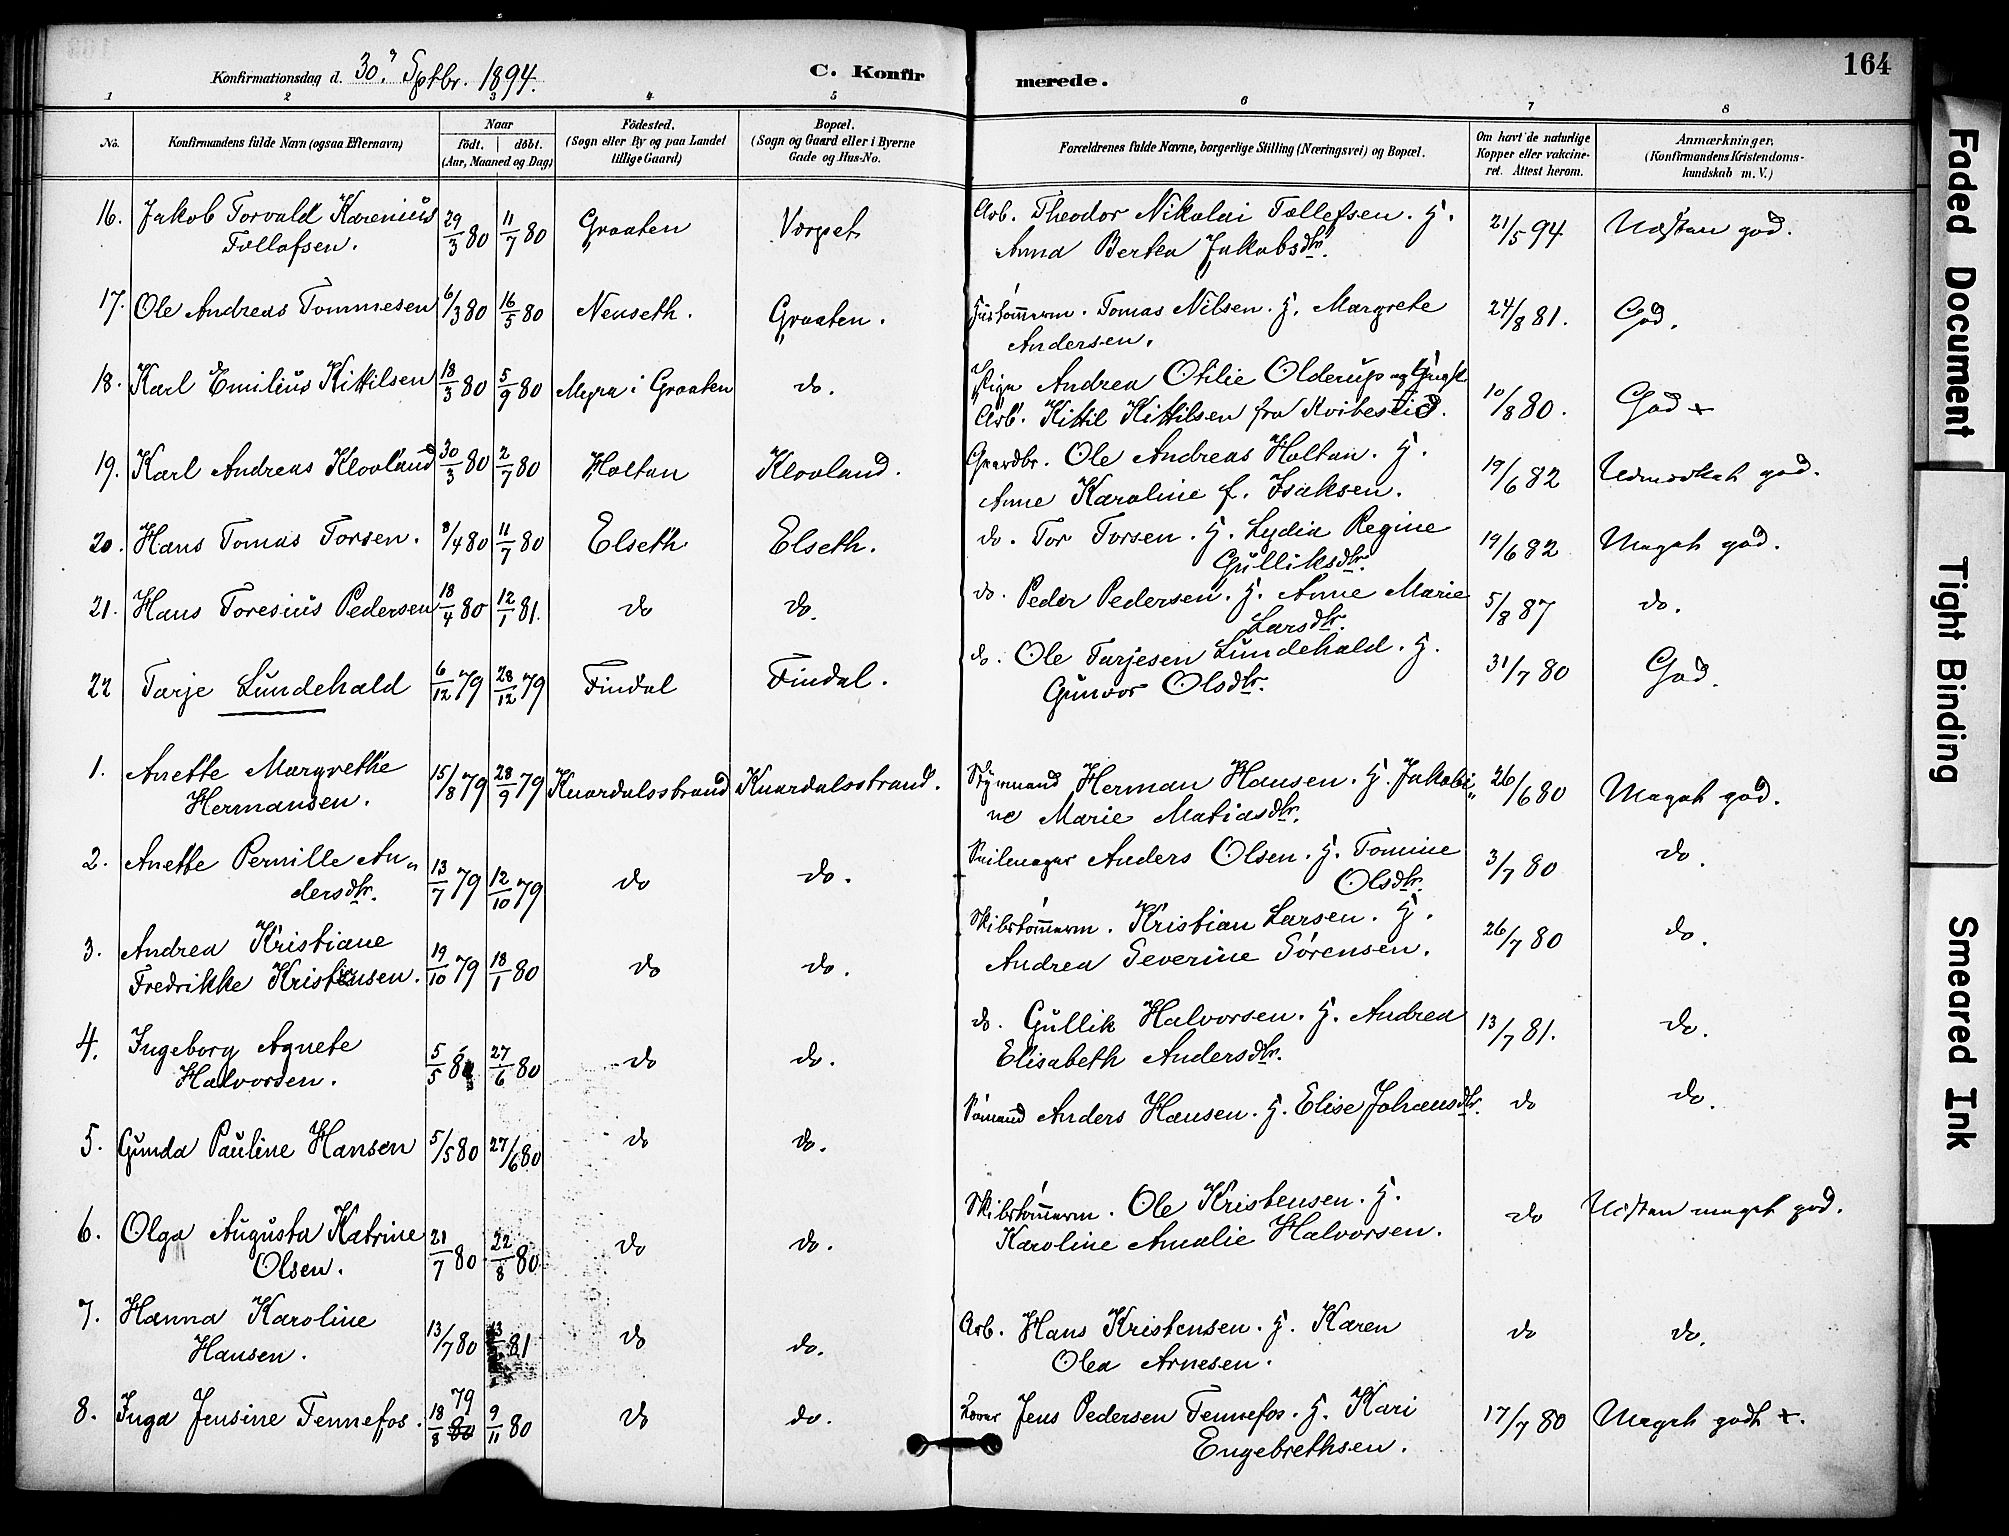 164
Konfirmationsdag d. 30. Sptbr. 1894.
C. Konfirmerede.
1 2 3 4 5 6 7 8
No.
Konfirmandens fulde Navn (ogsaa Efternavn)
Naar
født. døbt.
(Aar, Maaned og Dag)
Fødested.
(Sogn eller By og paa Landet
tillige Gaard)
Bopæl.
(Sogn og Gaard eller i Byerne
Gade og Hus-No.
Forældrenes fulde Navne, borgerlige Stilling (Næringsvei) og Bopæl.
Om havt de naturlige
Kopper eller vakcine-
ret. Attest herom.
Anmærkninger.
(Konfirmandens Kristendoms-
kundskab m. V.)
16. Jakob Torvald Karenius 29/3 80 11/7 80 Graaten Værpet Arb. Theodor Nikolai Tollefsen. H. 21/5 94 Næsten god.
Tollefsen. Anna Bertea Jakobsdtr.
17. Ole Andreas Tommesen 6/3 80 16/5 80 Nenseth. Graaten. Hustømmerm. Tomas Nilsen. H. Margrete 24/8 81. God.
Andersen.
18. Karl Emilius Kittilsen 18/3 80 5/9 80 Myra i Graaten do. Pige Andrea Otilie Olderup og Ungk. 10/8 80. God +
Arb. Kittil Kittilsen fra Kvibeslid.
19. Karl Andreas Klovland 30/3 80 2/7 80 Holtan Klovland. Gaardbr. Ole Andreas Holtan. H. 19/6 82 Udmærket god.
Anne Karoline f. Isaksen.
20. Hans Tomas Torsen. 8/4 80 11/7 80 Elseth Elseth. do. Tor Torsen. H. Lydia Regine 19/6 82 Meget god.
Gulliksdtr.
21. Hans Toresius Pedersen 18/4 80 12/1 81. do do. do. Peder Pedersen. H. Anne Marie 5/8 87 do.
Larsdtr.
22 Tarje Lundehald 6/12 79 28/12 79 Findal Findal. do. Ole Tarjesen Lundehald. H. 31/7 80 God.
Gunvor Olsdtr.
1. Anette Margrethe 15/8 79 28/9 79 Knardalsstrand Knardalsstrand. Styrmand Herman Hansen. H. Jakobi„ 26/6 80 Meget god.
Hermansen. ne Marie Matiasdtr.
2. Anette Pernille An„ 13/7 79 12/10 79 do do. Seilmager Anders Olsen. H. Tomine 3/7 80 do.
dersdtr. Olsdtr.
3. Andrea Kristiane 19/10 79 18/1 80 do do. Skibstømmerm. Kristian Larsen. H. 26/7 80 do.
Fredrikke Kristiansen. Andrea Severine Sørensen.
4. Ingeborg Agnete 5/5 80 27/6 80 do do. do. Gullik Halvorsen. H. Andrea 13/7 81. do.
Halvorsen. Elisabeth Andersdtr.
5. Gunda Pauline Hansen 5/5 80 27/6 80 do do. Sømand Anders Hansen. H. Elise Johansdtr. do do.
6. Olga Augusta Katrine 21/7 80 22/8 80 do do. Skibstømmerm. Ole Kristensen. H. do Næsten meget god.
Olsen. Karoline Amalie Halvorsen.
7. Hanna Karoline 13/7 80 81 do do. Arb. Hans Kristensen. H. Karen do do.
Hansen. Olea Arnesen.
8. Inga Jensine Tennefos. 18/8 79 80 9/11 80 do do. Jens Pedersen Tennefos. H. Kari 17/7 80 Meget godt +.
Engebrethsen.
Faded Document
Tight Binding
Smeared Ink